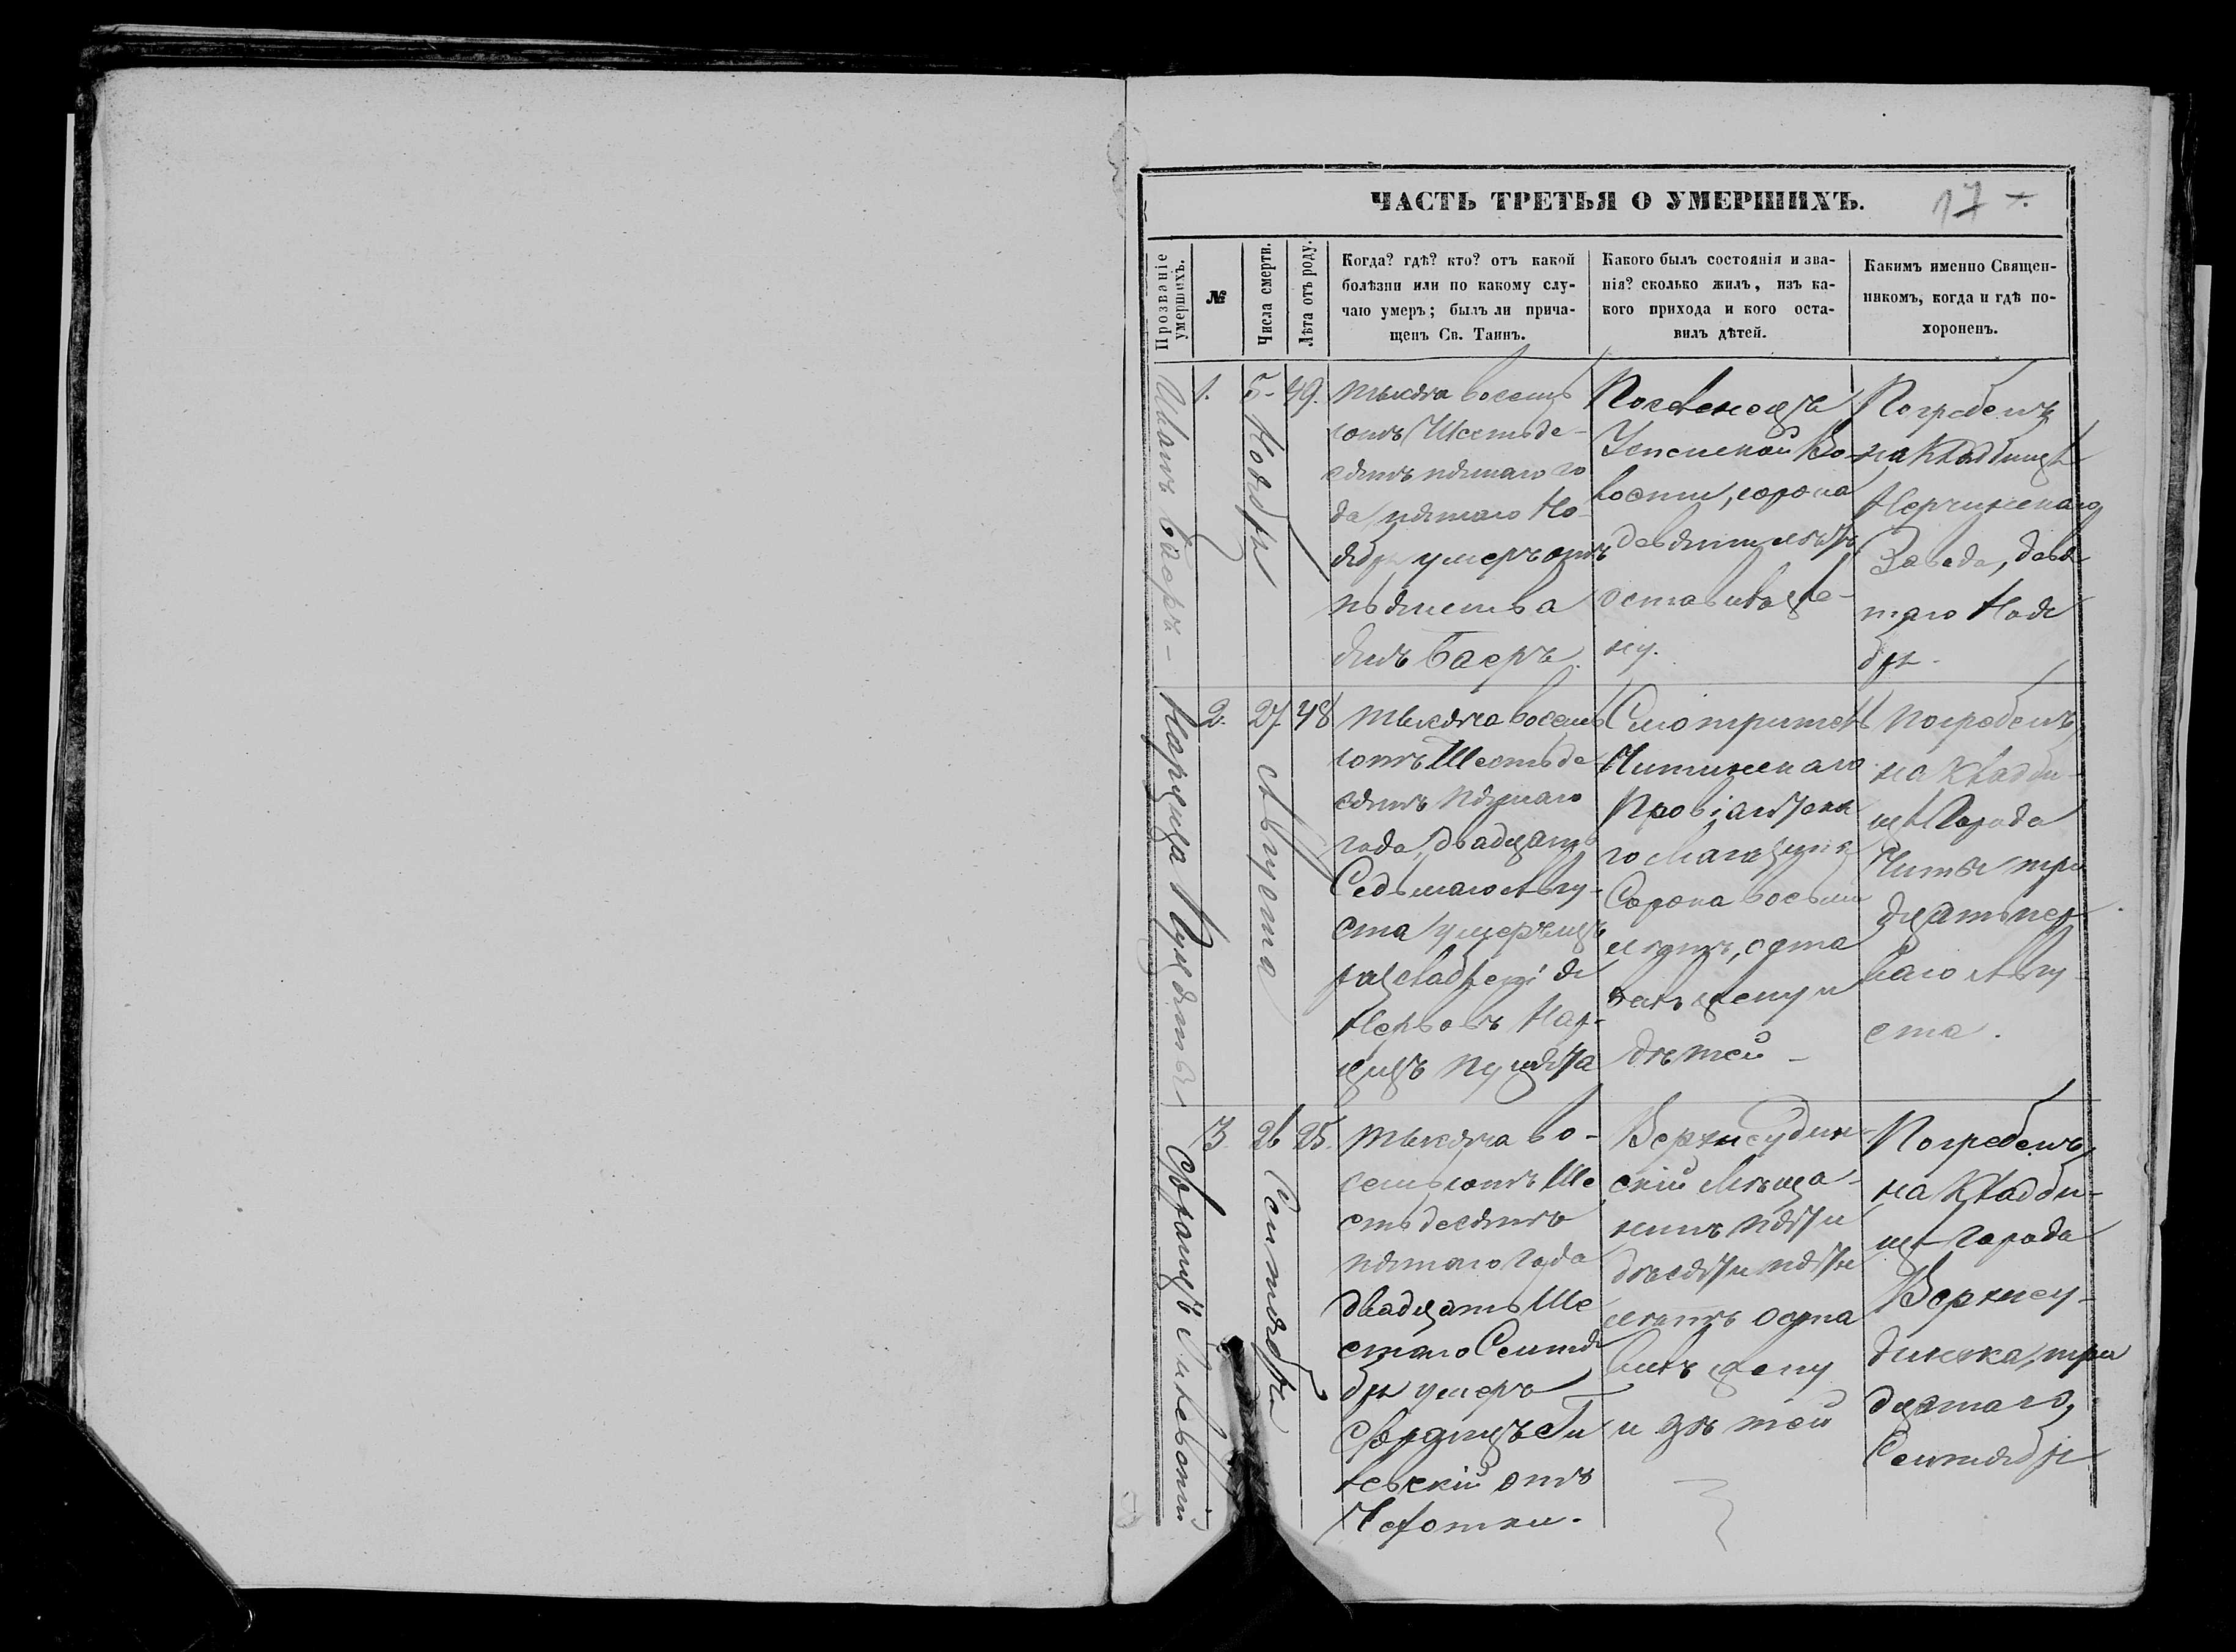 ЧАСТЬ ТРЕТЬЯ О УМЕРШИХЪ.
17
Прозваніе умершихъ.
№
Числа смерти.
Лѣта отъ роду.
Когда? гдѣ? кто? отъ какой
болѣзни или по какому слу-
чаю умеръ; былъ ли прича-
щенъ Св. Таинъ.
Какого былъ состоянія и зва-
нія? сколько жилъ, изъ ка-
кого прихода и кого оста-
вилъ дѣтей.
Какимъ именно Священ-
никомъ, когда и гдѣ по-
хороненъ.
Баеръ -
1.
5-
Ноября
49.
тысяча восемь
сотъ Шестьде-
сятъ пятаго го
да пятаго Но-
ября умеръ отъ
пьянства
Баеръ
Поселенецъ
Во-
лости, сорока
девяти лѣтъ
оставивъ же-
ну.
Погребенъ
на Кладбищѣ
Нерчинскаго
Завода, девя
таго Ноя
бря.
Нарциза
2.
27
Августа
48
тысяча восемь
сотъ Шестьде
сятъ пятаго
года, двадцать
Седьмаго Авгу-
ста умеръ изъ
Нервовъ Нар-
цизъ
Смотритель
Читинскаго
Провіантска
го Магазина
Сорока восьми
лѣтъ, оста
вилъ жену и
дѣтей -
погребенъ
на Кладби-
щѣ Города
Читы три
дцать пер
ваго Авгу-
ста.
Францъ
3.
26
Сентября
25.
тысяча во-
семьсотъ Ше
стьдесятъ
пятаго года
двадцать Ше
стаго Сентя
бря умеръ
Францъ
левскій отъ
Чахотки.
Верхнеудин-
скій Мѣща-
нинъ
пяти
лѣтъ оста
вилъ жену
и дѣтей
Погребенъ
на Кладби-
щѣ Города
Верхнеу-
динска, три
дцатаго
Сентября